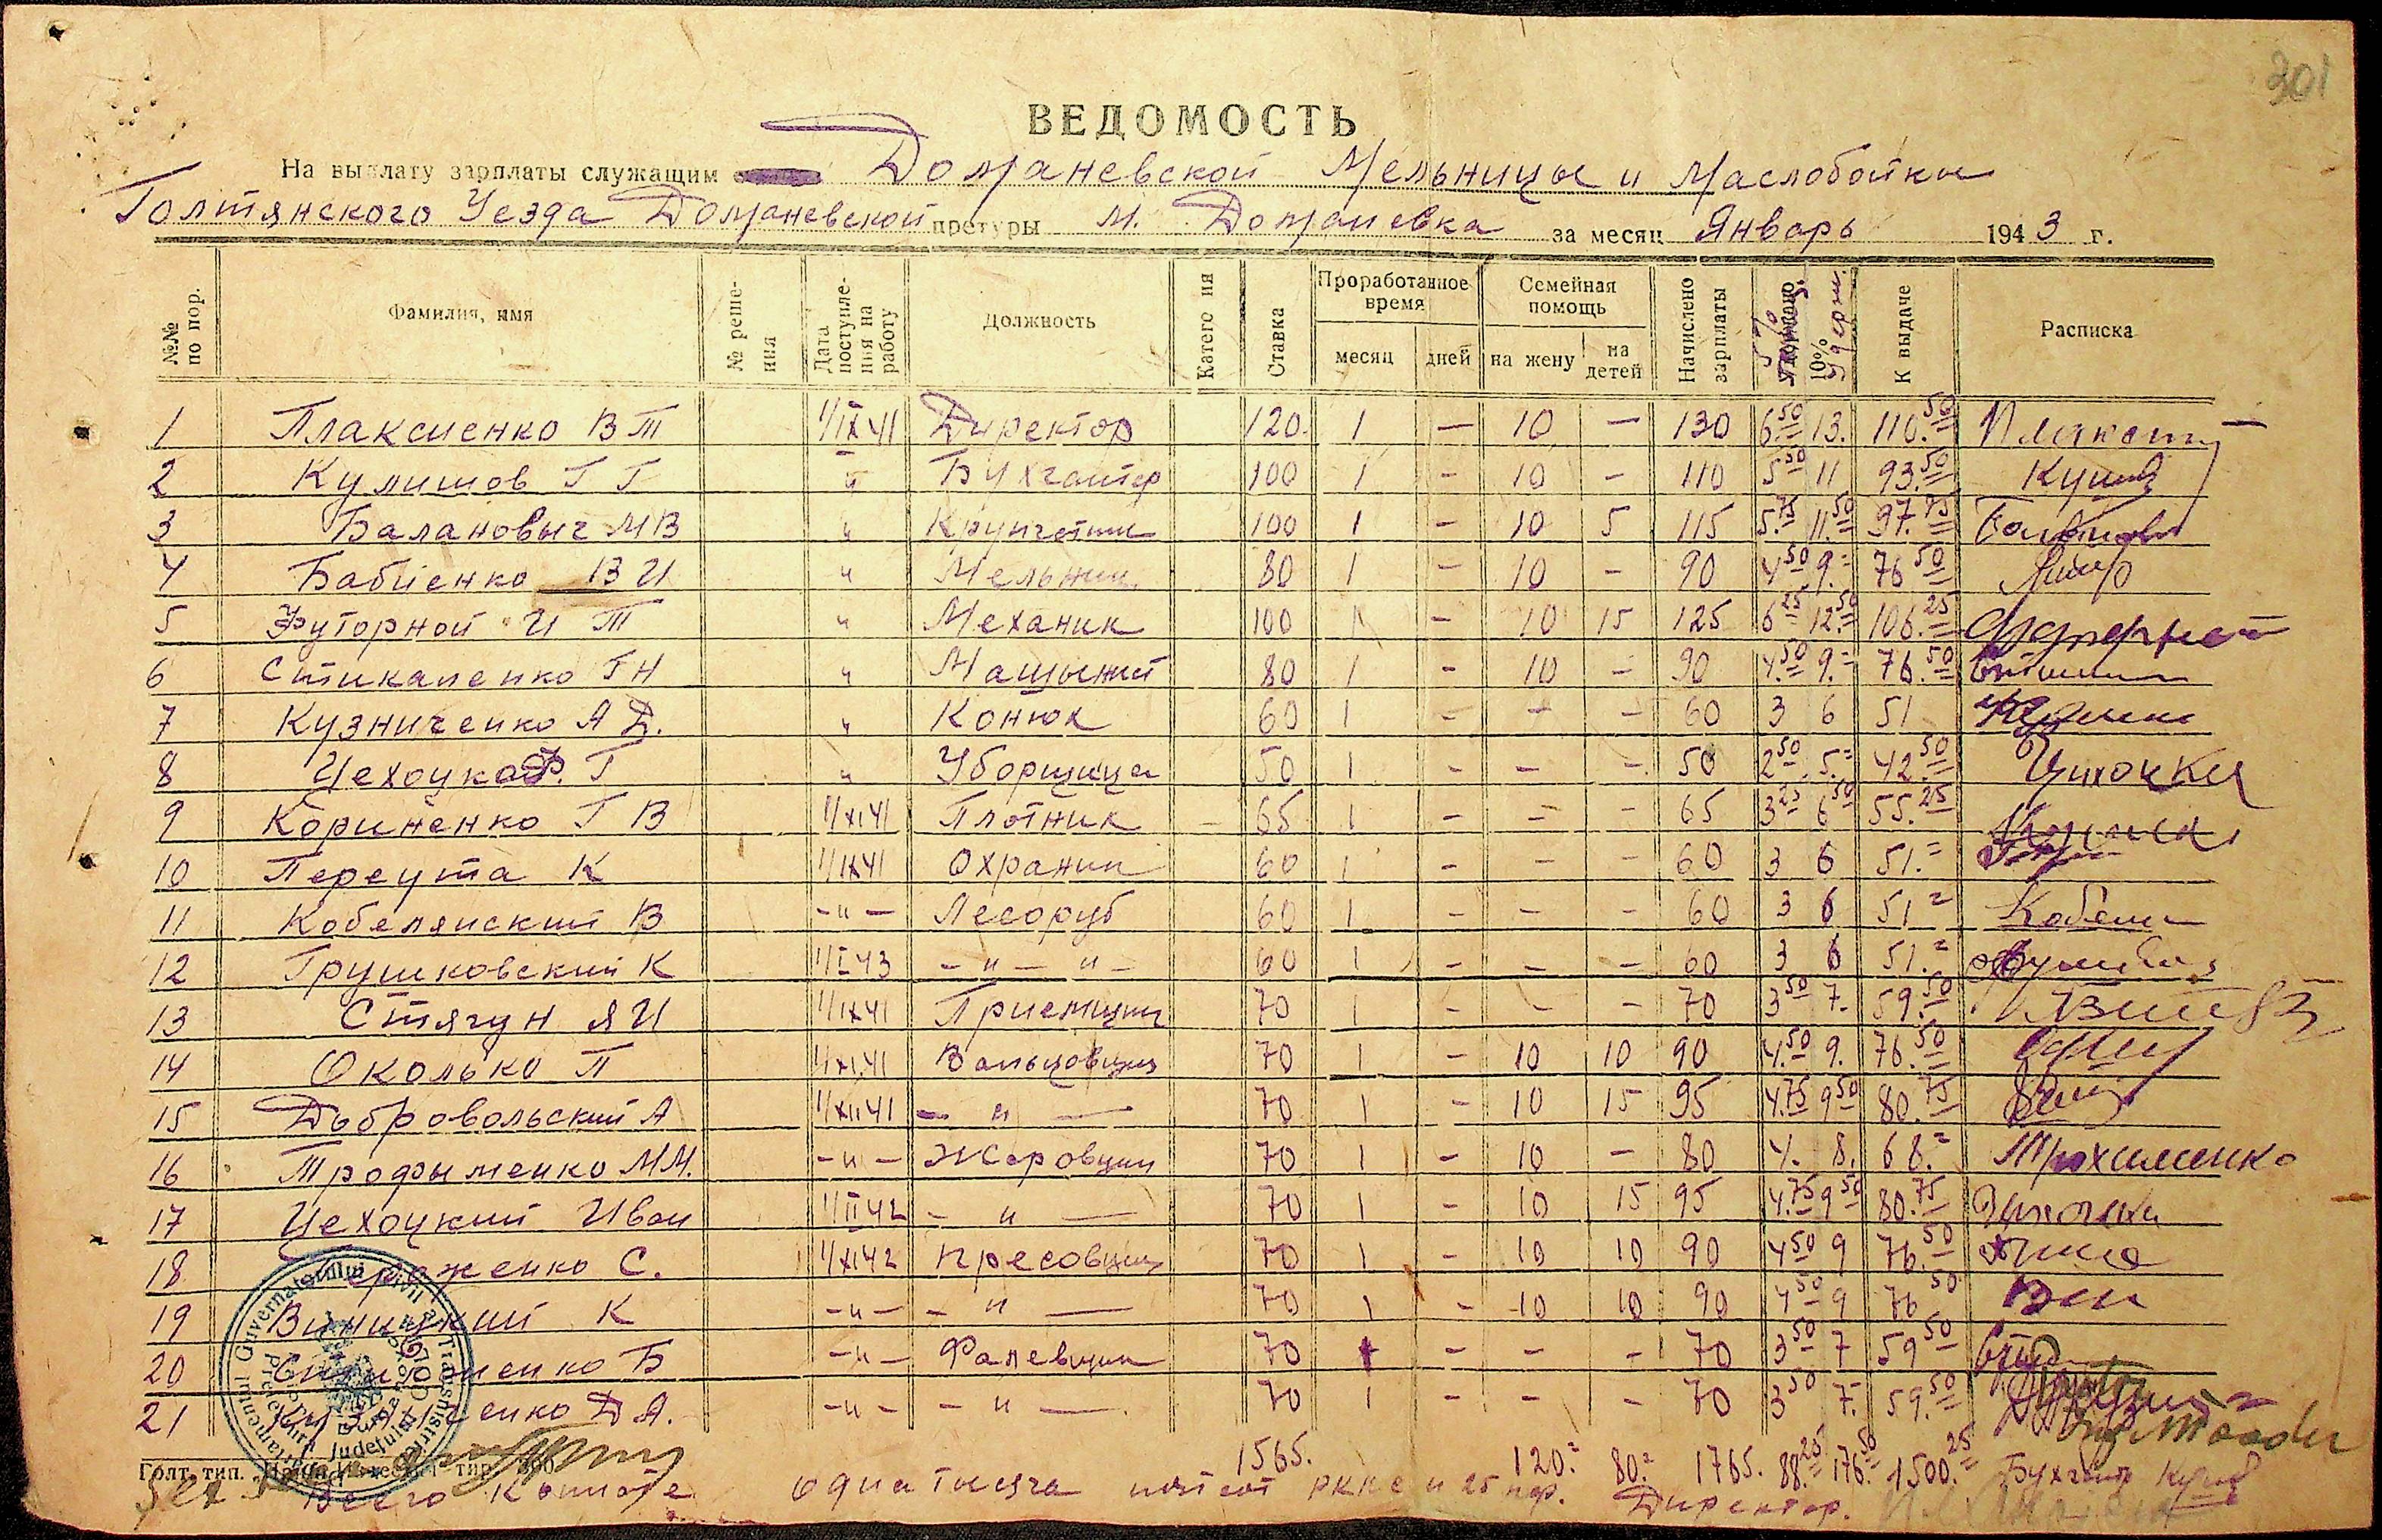 301
ВЕДОМОСТЬ
На выплату зарплаты служащим Доманевской Мельницы и Маслобойки
Голтянского Уезда Доманевской претуры м. Доманевка за месяц Январь 1943 г.
№№ по пор. Фамилия, имя № реше- ния Дата поступле- ния на работу Должность Катего ия Ставка Проработанное время месяц дней Семейная помощь на жену на детей Начислено зарплаты 5% 10% удерж. К выдаче Расписка
1 Плаксиенко В Т 1/IX 41 Директор 120. 1 — 10 — 130 6.50 13. 110.50
2 Кулишов Г Г " Бухгалтер 100 1 - 10 - 110 5.50 11 93.50
3 Балановыч М В " Крупчатник 100 1 - 10 5 115 5.75 11.50 97.75
4 Бабиенко В И " Мельник 80 1 - 10 - 90 4.50 9.= 76.50
5 Футорной И Т " Механик 100 1 - 10 15 125 6.25 12.50 106.25
6 Стикаленко Г Н " Машынист 80 1 - 10 - 90 4.50 9.= 76.50
7 Кузниченко А Д. " Конюх 60 1 - - - 60 3 6 51
8 Цехоцкая Ф. Г " Уборщица 50 1 - - - 50 2.50 5.= 42.50
9 Кориненко Г В 1/XI 41 Плотник 65 1 - - - 65 3.25 6.50 55.25
10 Переута К 1/IX 41 Охраник 60 1 - - - 60 3 6 51.=
11 Кобелянский В -"- Лесоруб 60 1 - - - 60 3 6 51.= Кобели
12 Грушковский К 1/I 43 -"- "- 60 1 - - - 60 3 6 51.=
13 Стягун Я И 1/IX 41 Приемщик 70 1 - - - 70 3.50 7. 59.50
14 Околько П 1/XI 41 Вальцовщик 70 1 - 10 10 90 4.50 9. 76.50
15 Добровольский А 1/XII 41 - " - 70 1 - 10 15 95 4.75 9.50 80.75
16 Трофыменко М М. -"- Жаровщик 70 1 - 10 - 80 4. 8. 68.= Трохименко
17 Цехоцкий Иван 1/II 42 - " - 70 1 - 10 15 95 4.75 9.50 80.75
18 С. 1/XI 42 Пресовщик 70 1 - 10 10 90 4.50 9 76.50
19 Виницкий К -"- - " - 70 1 - 10 10 90 4.50 9 76.50 Вин
20 Б -"- Фалевщик 70 1 - - - 70 3.50 7 59.50
21 Кузниченко Д А. -"- - " - 70 1 - - - 70 3.50 7. 59.50
1565. 120.= 80.= 1765. 88.25 176.50 1500.25 Бухгалтер
Голт. тип.
Всего к выплате одна тысяча пятсот ркке и 25 пф. Директор.
Guvernatorul Civil al Transnistriei
Judeţului Golta